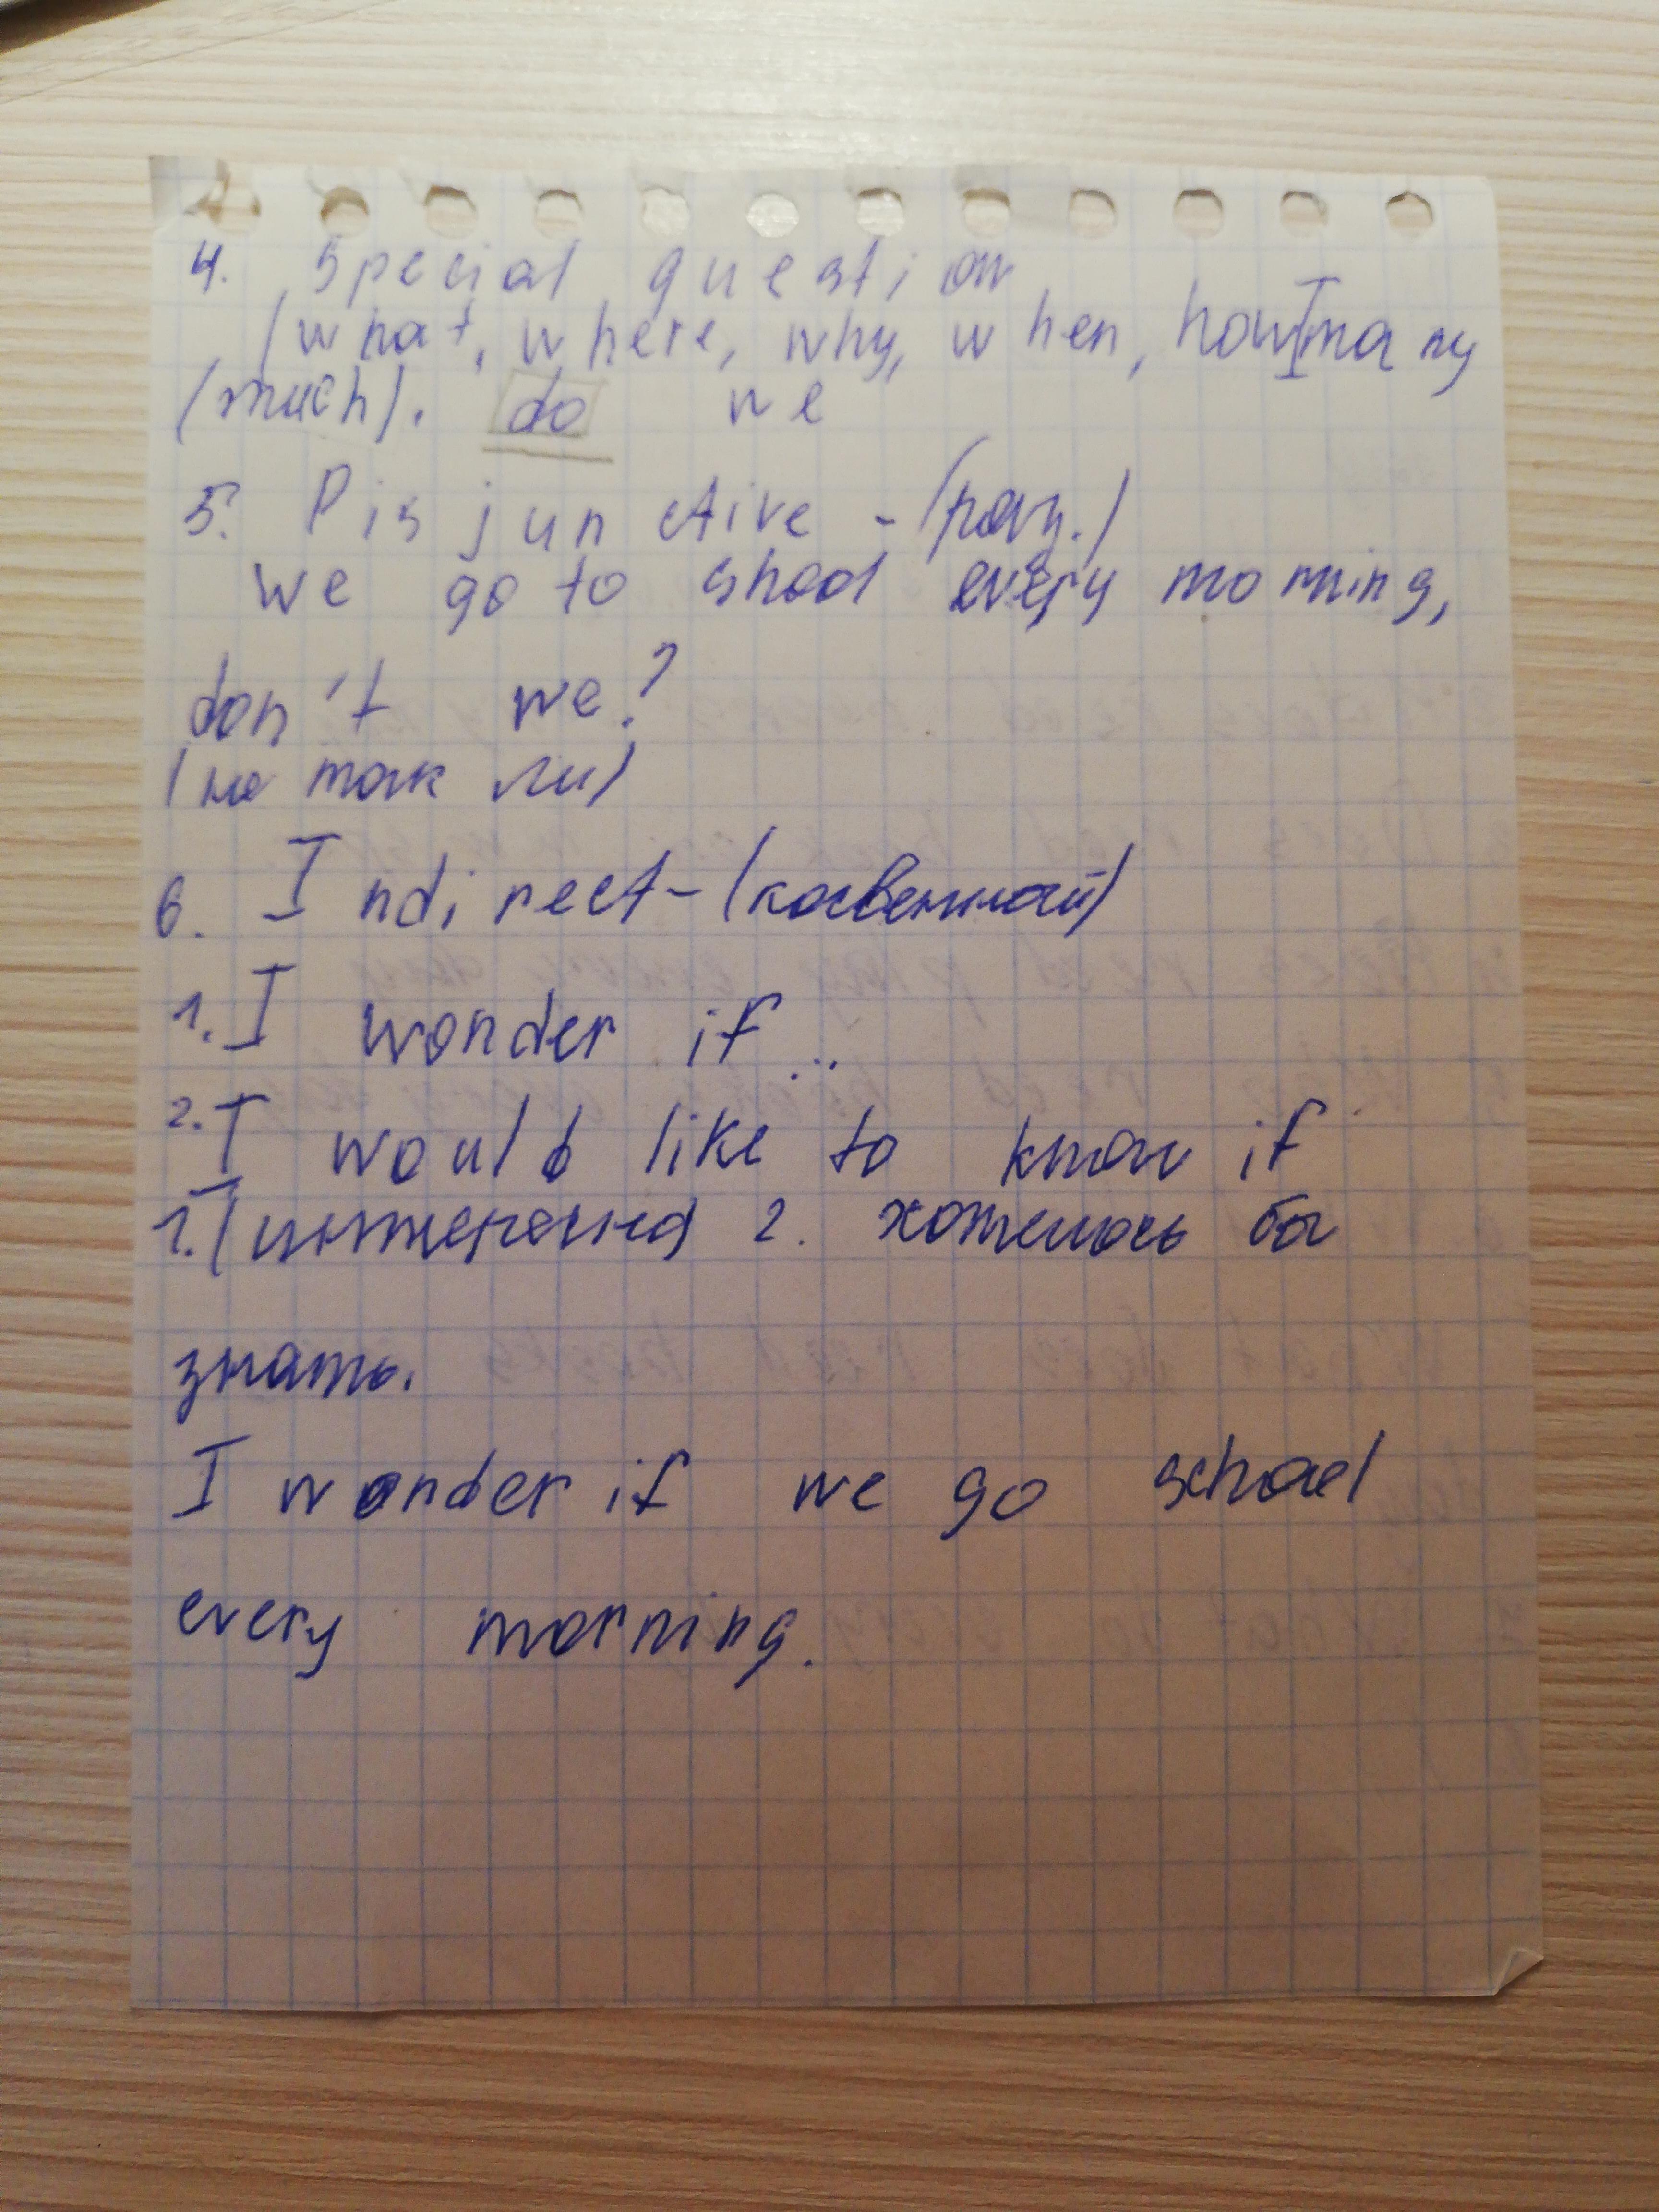 4. Special question
(what, where, why, when, how many
(much). do we
5. Disjunctive - (раз.)
We go to shool every morning,
don't we?
(не так ли)
6. Indirect - (косвенный)
1. I wonder if ..
2. I would like to know if
1. (интересно) 2. хотелось бы
знать.
I wonder if we go school
every morning.